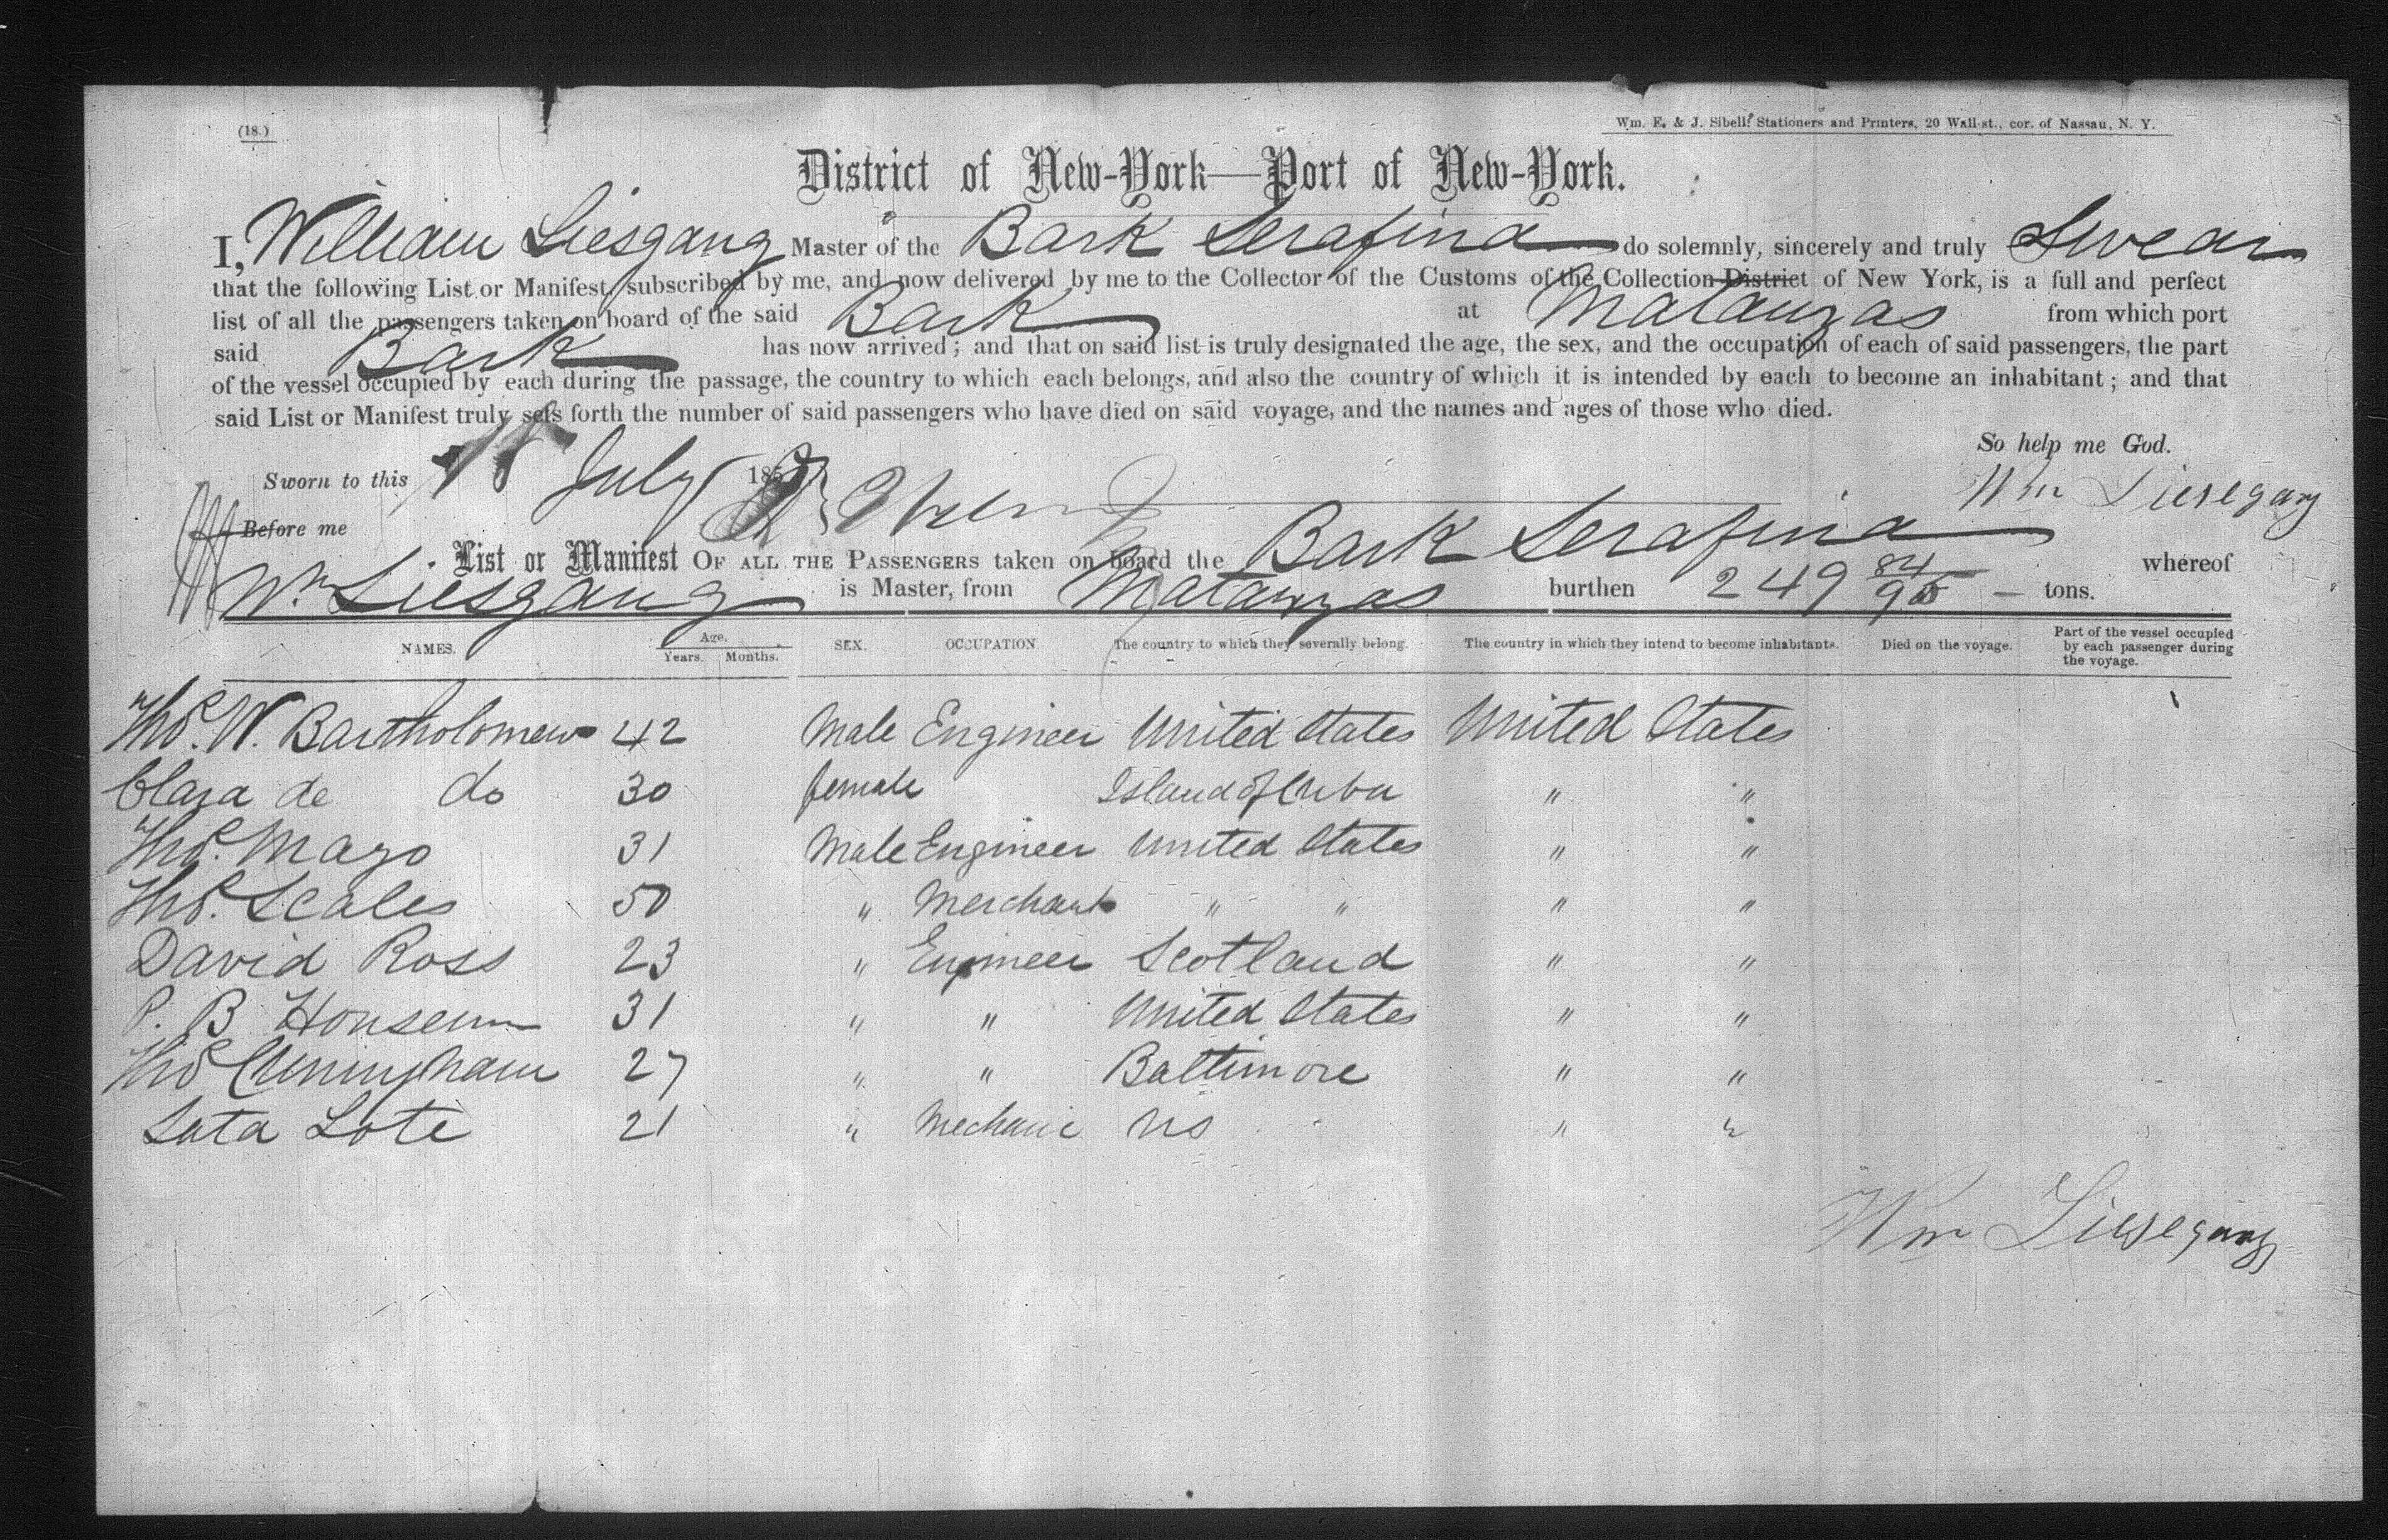 (18.)
Wm. E. & J. Sibell, Stationers and Printers, 20 Wall-st., cor. of Nassau, N. Y.
District of New-York—Port of New-York.
I, William Liesgang Master of the Bark Serafina do solemnly, sincerely and truly Swear
that the following List or Manifest, subscribed by me, and now delivered by me to the Collector of the Customs of the Collection District of New York, is a full and perfect
list of all the passengers taken on board of the said Bark at Matanzas from which port
said Bark has now arrived; and that on said list is truly designated the age, the sex, and the occupation of each of said passengers, the part
of the vessel occupied by each during the passage, the country to which each belongs, and also the country of which it is intended by each to become an inhabitant; and that
said List or Manifest truly sets forth the number of said passengers who have died on said voyage, and the names and ages of those who died.
So help me God.
Sworn to this July 185
Wm Liesegang
Before me
List or Manifest OF ALL THE PASSENGERS taken on board the Bark Serafina whereof
Wm Liesgang is Master, from Matanzas burthen 249 84/95 — tons.
NAMES. Age. Years. Months. SEX. OCCUPATION The country to which they severally belong. The country in which they intend to become inhabitants. Died on the voyage. Part of the vessel occupied by each passenger during the voyage.
Thos. W. Bartholomew 42 Male Engineer United States United States
Clara de do 30 female Island of Cuba " "
Thos. Mayo 31 Male Engineer United States " "
Thos. Scales 50 " Merchant " " " "
David Ross 23 " Engineer Scotland " "
P. B 31 " " United States " "
Thos Cunningham 27 " " Baltimore " "
Lote 21 " Mechanic US " "
Wm Liesegang